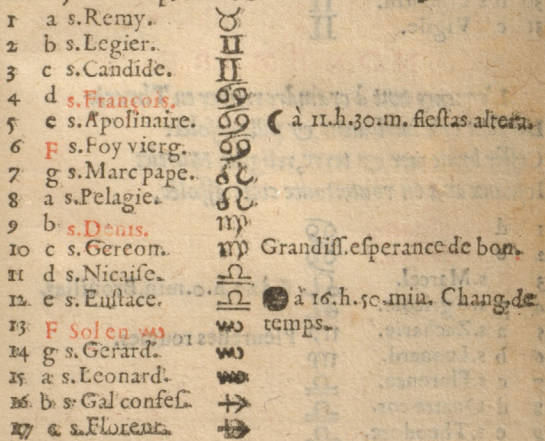 1 a s.Remy. ♉
2 b s.Legier. ♊
3 c s.Candide. ♊
4 d s.François. ♋
5 e s.Apolinaire. ♋ ☾ à 11.h.30.m. fiestas altera.
6 F s.Foy vierg. ♋
7 g s.Marc pape. ♌
8 a s.Pelagie. ♌
9 b s.Denis. ♍
10 c s.Gereon. ♍ Grandiss.esperance de bon.
11 d s.Nicaise. ♎
12 e s.Eustace. ♎ ● à 16.h.50.min. Chang.de
13 F Sol en ♏ ♏ temps.
14 g s.Gerard. ♏
15 a s.Leonard. ♏
16 b s.Gal confes. ♐
17 c s.Florent. ♐